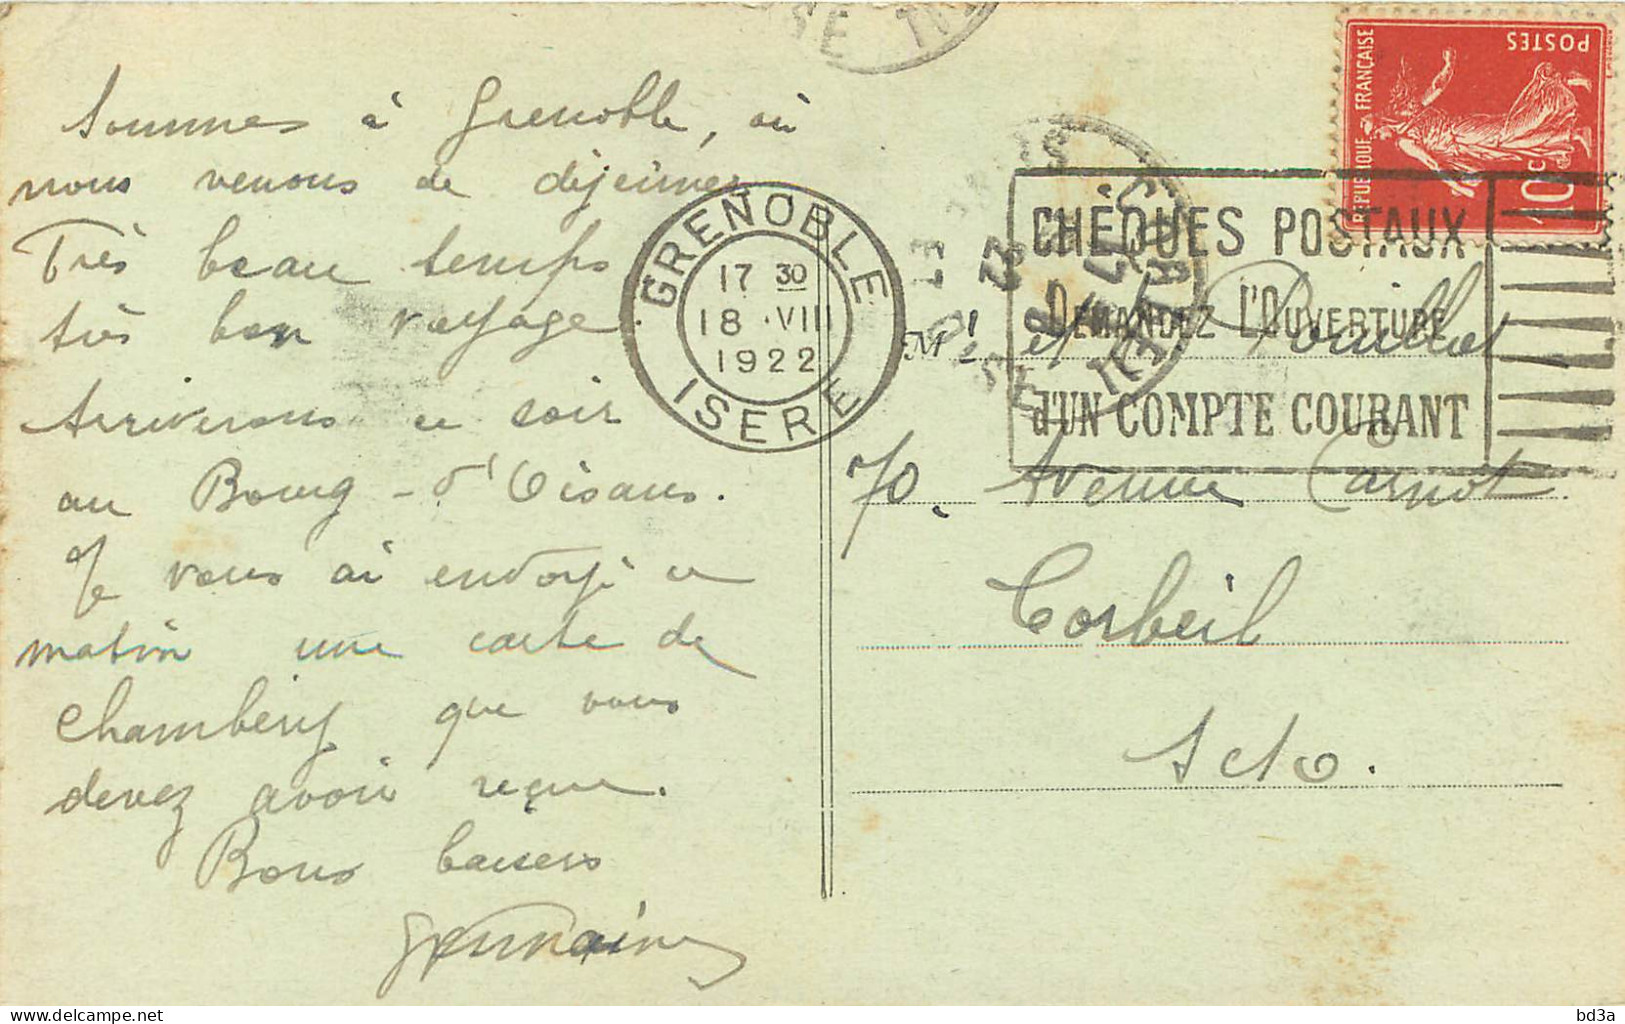 Sommes à Grenoble, où
nous venons de déjeuner
Très beau temps
très bon voyage.
Arriverons ce soir
au Bourg-d'Oisans.
Je vous ai envoyé ce
matin une carte de
Chambéry que vous
devez avoir reçue.
Bons baisers
Germaine
GRENOBLE
17 30
18 · VIII
1922
ISERE
CHÈQUES POSTAUX
DEMANDEZ L'OUVERTURE
d'UN COMPTE COURANT
RÉPUBLIQUE FRANÇAISE
POSTES
10c
M! et
70. Avenue Carnot
Corbeil
S et O.
delcampe.net
bd3a